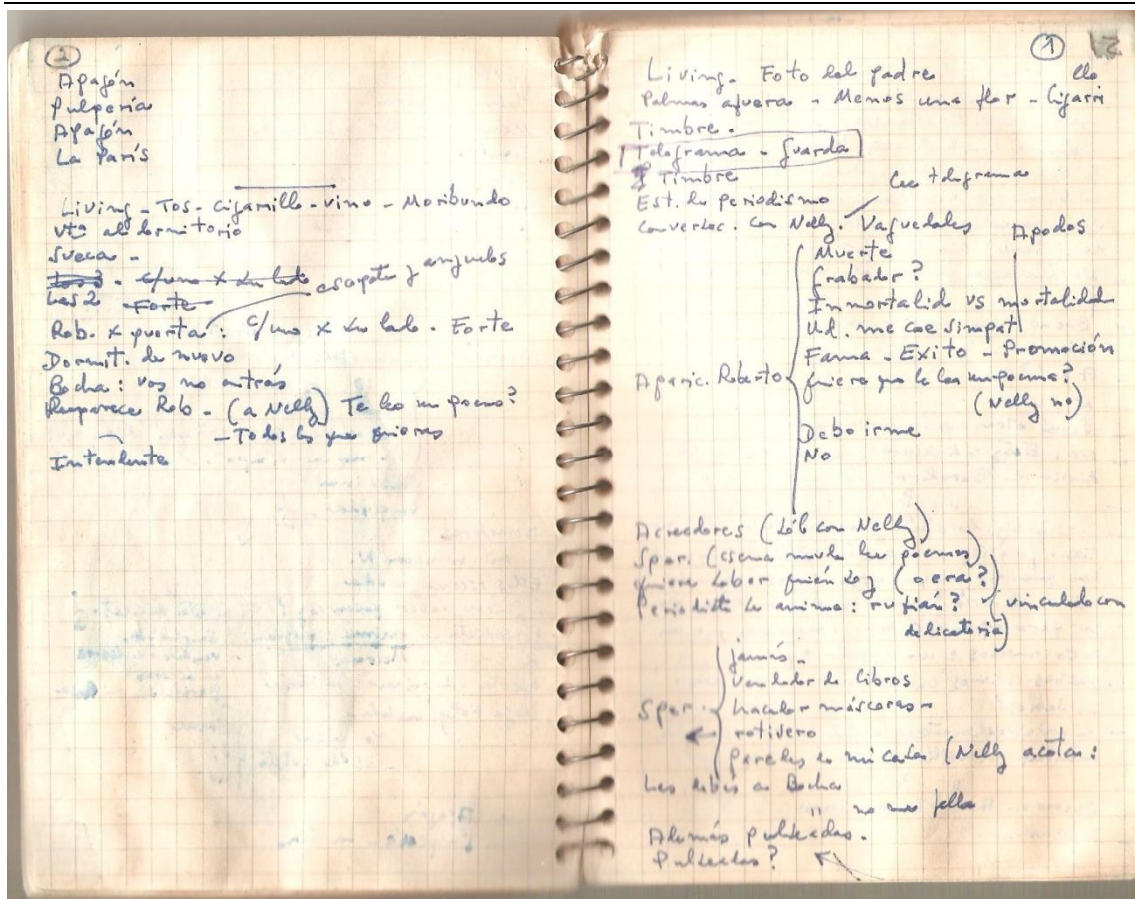 ②
Apagón
Pulpería
Apagón
La París
Living - Tos - cigarrillo - vino - Moribundo
al dormitorio
Sueca -
c/uno x su lado
Las 2 Forte
Rob. x puerta: c/uno x su lado. Forte
Dormit. de nuevo
Bocha: vos no entrás
Reaparece Rob - (a Nelly) Te leo un poema?
- Todos los que quieras
Intendente
①
Living. Foto del padre
Palmas afuera - Menos una flor - Cigarri
llo
Timbre.
Telegrama - Guarda
Timbre
Lee telegrama
Est. de periodismo
Con Nelly. Vaguedades
Apodos
Muerte
Grabador?
Inmortalid vs mortalidad
Ud. me cae simpat
Fama - Exito - Promoción
Aparic. Roberto
quiere que le lea un poema?
(Nelly no)
Debo irme
No
Acreedores ( con Nelly)
Spar. (escena muda lee poemas)
quiere saber quién soy (o era?)
Periodista lo anima: rufián?
vinculado con
dedicatoria
Spar.
jamás -
vendedor de libros
hacedor máscaras -
rotisero
paredes de mi casa (Nelly acota:
Les debés a Bocha
no me falla
Además puteadas.
Puteadas?